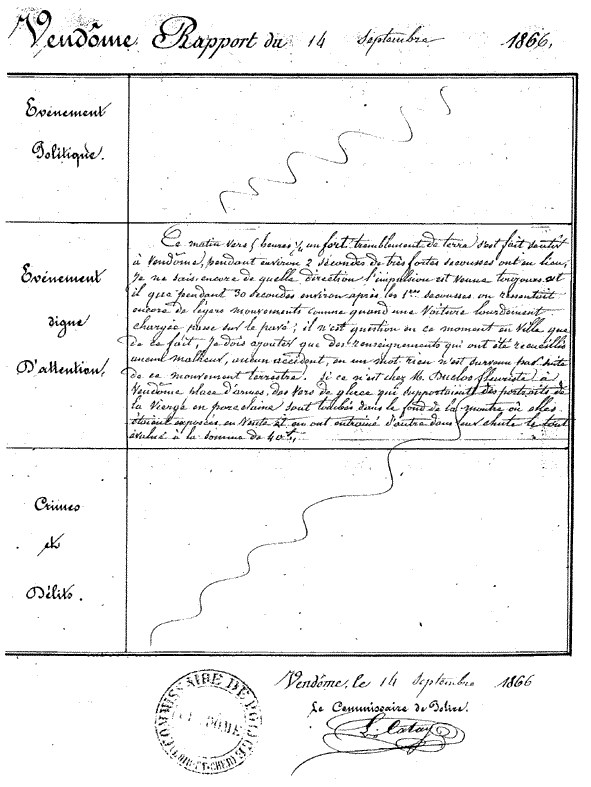 Vendôme Rapport du 14 Septembre 1866,
Evénement
Politique.
Evénement
digne
D'attention.
Ce matin vers 5 heures 1/4 un fort tremblement de terre s'est fait sentir
à Vendôme, pendant environ 2 secondes de très fortes secousses ont eu lieu,
je ne sais encore de quelle direction l'impulsion est venue toujours est
il que pendant 30 secondes environ après les 1ères secousses on ressentait
encore de légers mouvements comme quand une voiture lourdement
chargée passe sur le pavé; il n'est question en ce moment en ville que
de ce fait, je dois ajouter que des renseignements qui ont été recueillis
aucun malheur, aucun accident, en un mot rien n'est survenu par suite
de ce mouvement terrestre. Si ce n'est chez M. Duclos fleuriste à
Vendôme place d'armes, des vers de glace qui supportaient des portraits de
la Vierge en porcelaine sont tombés dans le fond de la montre où elles
étaient exposées en vente et en ont entrainé d'autre dans leur chute le tout
évalué à la somme de 40f,
Crimes
et
Délits.
Vendôme, le 14 Septembre 1866
Le Commissaire de Police
COMMISSAIRE DE POLICE
VENDÔME
LOIR-ET-CHER